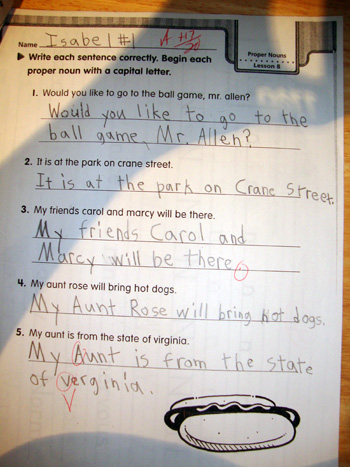 Name Isabel #1
A +19/20
Proper Nouns
Lesson 8
Write each sentence correctly. Begin each
proper noun with a capital letter.
1. Would you like to go to the ball game, mr. allen?
Would you like to go to the
ball game, Mr. Allen?
2. It is at the park on crane street.
It is at the park on Crane Street.
3. My friends carol and marcy will be there.
My friends Carol and
Marcy will be there.
4. My aunt rose will bring hot dogs.
My Aunt Rose will bring hot dogs.
5. My aunt is from the state of virginia.
My Aunt is from the state
of verginia.